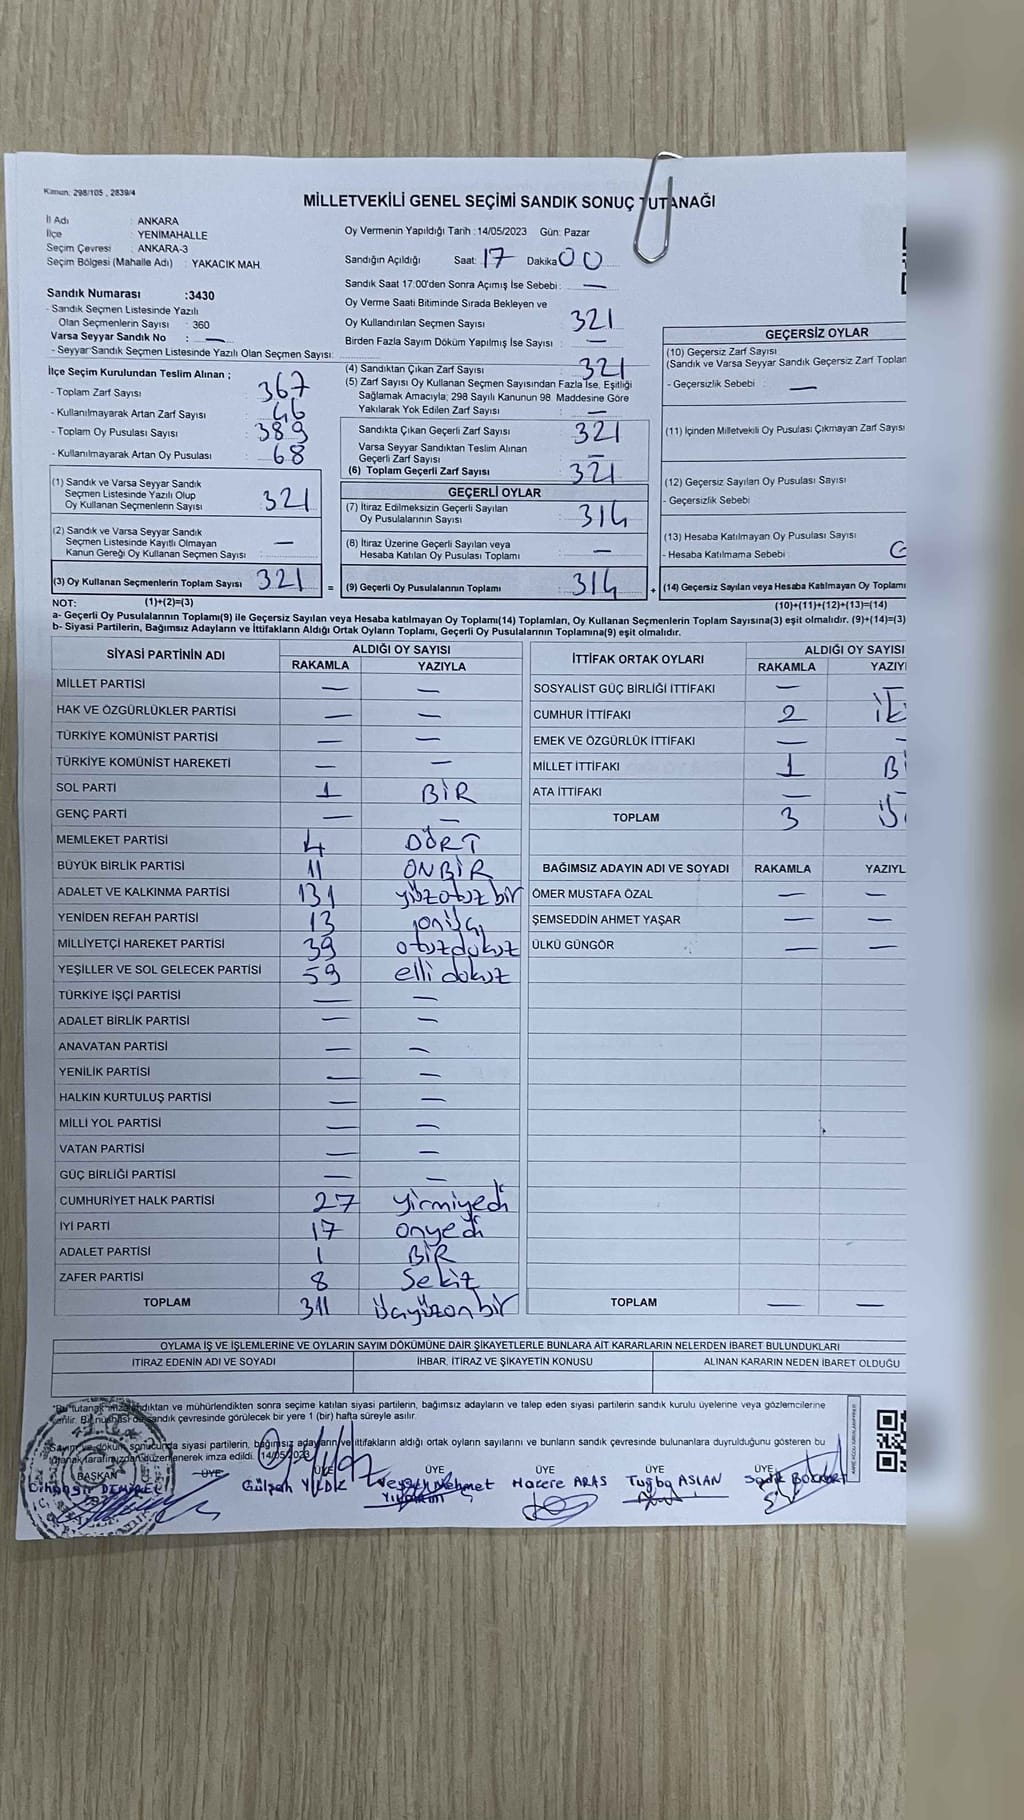 Kanun: 298/105 , 2839/4
MİLLETVEKİLİ GENEL SEÇİMİ SANDIK SONUÇ TUTANAĞI
İl Adı : ANKARA
İlçe : YENİMAHALLE
Seçim Çevresi : ANKARA-3
Seçim Bölgesi (Mahalle Adı) : YAKACIK MAH.
Oy Vermenin Yapıldığı Tarih : 14/05/2023 Gün: Pazar
Sandığın Açıldığı Saat: 17 Dakika 00
Sandık Saat 17:00'den Sonra Açımış İse Sebebi: —
Sandık Numarası :3430
- Sandık Seçmen Listesinde Yazılı
Olan Seçmenlerin Sayısı : 360
Varsa Seyyar Sandık No : —
- Seyyar Sandık Seçmen Listesinde Yazılı Olan Seçmen Sayısı:
Oy Verme Saati Bitiminde Sırada Bekleyen ve
Oy Kullandırılan Seçmen Sayısı 321
Birden Fazla Sayım Döküm Yapılmış İse Sayısı : —
İlçe Seçim Kurulundan Teslim Alınan ;
- Toplam Zarf Sayısı : 367
- Kullanılmayarak Artan Zarf Sayısı : 46
- Toplam Oy Pusulası Sayısı : 389
- Kullanılmayarak Artan Oy Pusulası : 68
(1) Sandık ve Varsa Seyyar Sandık
Seçmen Listesinde Yazılı Olup
Oy Kullanan Seçmenlerin Sayısı : 321
(2) Sandık ve Varsa Seyyar Sandık
Seçmen Listesinde Kayıtlı Olmayan
Kanun Gereği Oy Kullanan Seçmen Sayısı : —
(3) Oy Kullanan Seçmenlerin Toplam Sayısı : 321
(4) Sandıktan Çıkan Zarf Sayısı : 321
(5) Zarf Sayısı Oy Kullanan Seçmen Sayısından Fazla İse, Eşitliği
Sağlamak Amacıyla; 298 Sayılı Kanunun 98. Maddesine Göre
Yakılarak Yok Edilen Zarf Sayısı : —
Sandıkta Çıkan Geçerli Zarf Sayısı : 321
Varsa Seyyar Sandıktan Teslim Alınan
Geçerli Zarf Sayısı : —
(6) Toplam Geçerli Zarf Sayısı : 321
GEÇERLİ OYLAR
(7) İtiraz Edilmeksizin Geçerli Sayılan
Oy Pusulalarının Sayısı : 314
(8) İtiraz Üzerine Geçerli Sayılan veya
Hesaba Katılan Oy Pusulası Toplamı : —
= (9) Geçerli Oy Pusulalarının Toplamı : 314
GEÇERSİZ OYLAR
(10) Geçersiz Zarf Sayısı
(Sandık ve Varsa Seyyar Sandık Geçersiz Zarf Toplan
- Geçersizlik Sebebi : —
(11) İçinden Milletvekili Oy Pusulası Çıkmayan Zarf Sayısı
(12) Geçersiz Sayılan Oy Pusulası Sayısı
- Geçersizlik Sebebi
(13) Hesaba Katılmayan Oy Pusulası Sayısı
- Hesaba Katılmama Sebebi
+ (14) Geçersiz Sayılan veya Hesaba Katılmayan Oy Toplamı
NOT: (1)+(2)=(3)
(10)+(11)+(12)+(13)=(14)
a- Geçerli Oy Pusulalarının Toplamı(9) ile Geçersiz Sayılan veya Hesaba katılmayan Oy Toplamı(14) Toplamları, Oy Kullanan Seçmenlerin Toplam Sayısına(3) eşit olmalıdır. (9)+(14)=(3)
b- Siyasi Partilerin, Bağımsız Adayların ve İttifakların Aldığı Ortak Oyların Toplamı, Geçerli Oy Pusulalarının Toplamına(9) eşit olmalıdır.
SİYASİ PARTİNİN ADI ALDIĞI OY SAYISI
RAKAMLA YAZIYLA
MİLLET PARTİSİ — —
HAK VE ÖZGÜRLÜKLER PARTİSİ — —
TÜRKİYE KOMÜNİST PARTİSİ — —
TÜRKİYE KOMÜNİST HAREKETİ — —
SOL PARTİ 1 BİR
GENÇ PARTİ — —
MEMLEKET PARTİSİ 4 DÖRT
BÜYÜK BİRLİK PARTİSİ 11 ONBİR
ADALET VE KALKINMA PARTİSİ 131 yüzotuzbir
YENİDEN REFAH PARTİSİ 13 onüç
MİLLİYETÇİ HAREKET PARTİSİ 39 otuzdokuz
YEŞİLLER VE SOL GELECEK PARTİSİ 59 elli dokuz
TÜRKİYE İŞÇİ PARTİSİ — —
ADALET BİRLİK PARTİSİ — —
ANAVATAN PARTİSİ — —
YENİLİK PARTİSİ — —
HALKIN KURTULUŞ PARTİSİ — —
MİLLİ YOL PARTİSİ — —
VATAN PARTİSİ — —
GÜÇ BİRLİĞİ PARTİSİ — —
CUMHURİYET HALK PARTİSİ 27 yirmiyedi
İYİ PARTİ 17 onyedi
ADALET PARTİSİ 1 BİR
ZAFER PARTİSİ 8 Sekiz
TOPLAM 311 üçyüzonbir
İTTİFAK ORTAK OYLARI ALDIĞI OY SAYISI
RAKAMLA YAZIYL
SOSYALİST GÜÇ BİRLİĞİ İTTİFAKI —
CUMHUR İTTİFAKI 2 İK
EMEK VE ÖZGÜRLÜK İTTİFAKI — —
MİLLET İTTİFAKI 1 Bİ
ATA İTTİFAKI — —
TOPLAM 3 Ü
BAĞIMSIZ ADAYIN ADI VE SOYADI RAKAMLA YAZIYL
ÖMER MUSTAFA ÖZAL — —
ŞEMSEDDİN AHMET YAŞAR — —
ÜLKÜ GÜNGÖR — —
TOPLAM — —
OYLAMA İŞ VE İŞLEMLERİNE VE OYLARIN SAYIM DÖKÜMÜNE DAİR ŞİKAYETLERLE BUNLARA AİT KARARLARIN NELERDEN İBARET BULUNDUKLARI
İTİRAZ EDENİN ADI VE SOYADI İHBAR, İTİRAZ VE ŞİKAYETİN KONUSU ALINAN KARARIN NEDEN İBARET OLDUĞU
*Bu tutanak imzalandıktan ve mühürlendikten sonra seçime katılan siyasi partilerin, bağımsız adayların ve talep eden siyasi partilerin sandık kurulu üyelerine veya gözlemcilerine
verilir. Bir nüshası da sandık çevresinde görülecek bir yere 1 (bir) hafta süreyle asılır.
Sayım ve döküm sonucunda siyasi partilerin, bağımsız adayların ve ittifakların aldığı ortak oyların sayılarını ve bunların sandık çevresinde bulunanlara duyrulduğunu gösteren bu
tutanak tarafımızdan düzenlenerek imza edildi. (14/05/2023
BAŞKAN ÜYE ÜYE ÜYE ÜYE ÜYE ÜYE
DEMİREL Gülşah YILDIZ Mehmet Hacere ARAS Tuğba ASLAN